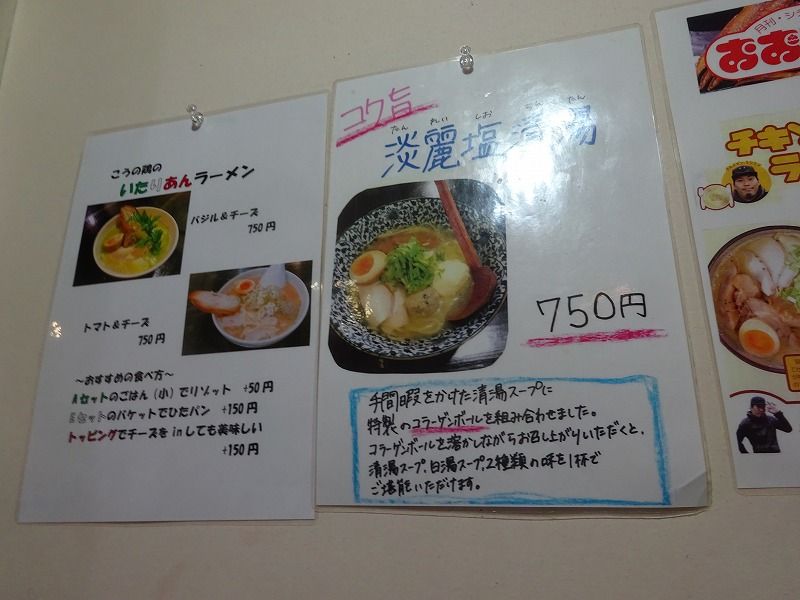 こうの鶏の
いたりあんラーメン
バジル&チーズ
750円
トマト&チーズ
750円
～おすすめの食べ方～
Aセットのごはん（小）でリゾット +50円
Eセットのバケットでひたパン +150円
トッピングでチーズをinしても美味しい
+150円
コク旨
たん れい しお ちん たん
淡麗塩清湯
750円
手間暇をかけた清湯スープに
特製のコラーゲンボールを組み合わせました。
コラーゲンボールを溶かしながらお召し上がりいただくと、
清湯スープ、白湯スープ、2種類の味を1杯で
ご堪能いただけます。
月刊・シ
おお
チキン
ラ